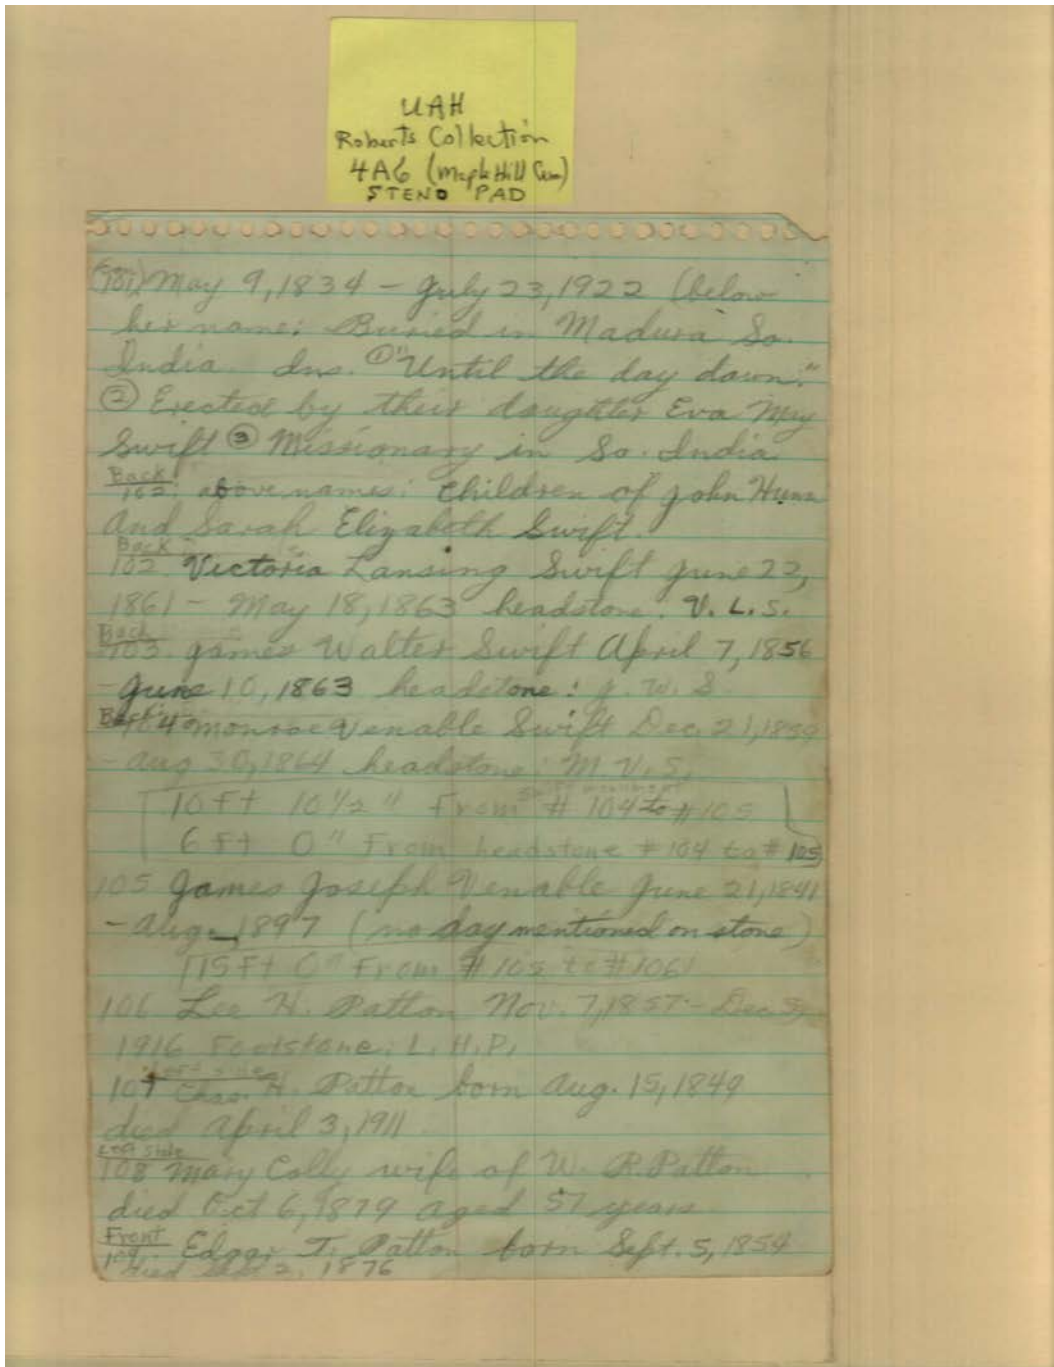 UAH
Roberts Collection
4A6 (Maple Hill Cem)
STENO PAD
101) May 9, 1834 - July 23, 1922 (below
her name: Buried in Madura So.
India. Ins. ① "Until the day dawn."
② Erected by their daughter Eva May
Swift ③ Missionary in So. India
Back
102: above names: Children of John Hunn
and Sarah Elizabeth Swift.
Back
102 Victoria Lansing Swift June 22,
1861 - May 18, 1863 headstone: V.L.S.
Back
103 James Walter Swift April 7, 1856
- June 10, 1863 headstone: J.W.S.
Back
104 Monroe Venable Swift Dec. 21, 1859
- Aug 30, 1864 headstone: M.V.S.
10 Ft 10 1/2" From # 104 to # 105
6 Ft 0" From headstone # 104 to # 105
105 James Joseph Venable June 21, 1841
- Aug. 1897 (no day mentioned on stone)
15 Ft 0" From # 105 to # 106
106 Lee H. Patton Nov. 7, 1857 - Dec 5,
1916 Footstone: L.H.P.
Left side
107 Chas. H. Patton born Aug. 15, 1849
died April 3, 1911
Left side
108 Mary Colly wife of W. R. Patton
died Oct 6, 1879 aged 57 years
Front
109. Edgar T. Patton born Sept. 5, 1854
died 2, 1876